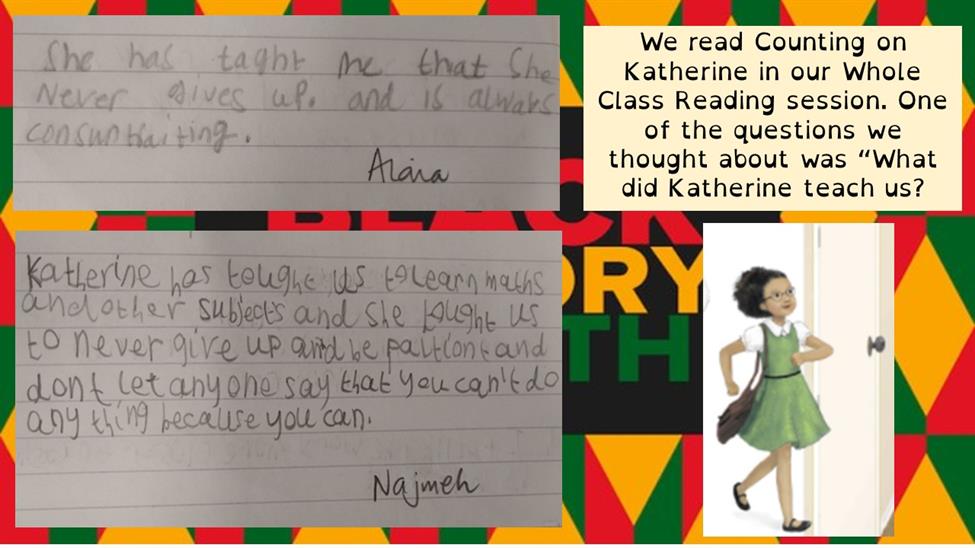 She has taght me that She
Never gives up. and is always
consuntraiting.
Alara
We read Counting on
Katherine in our Whole
Class Reading session. One
of the questions we
thought about was “What
did Katherine teach us?
BLACK
ORY
TH
Katherine has tought us to learn maths
and other subjects and she tought us
to never give up and be paitiont and
dont let anyone say that you can't do
any thing because you can.
Najmeh